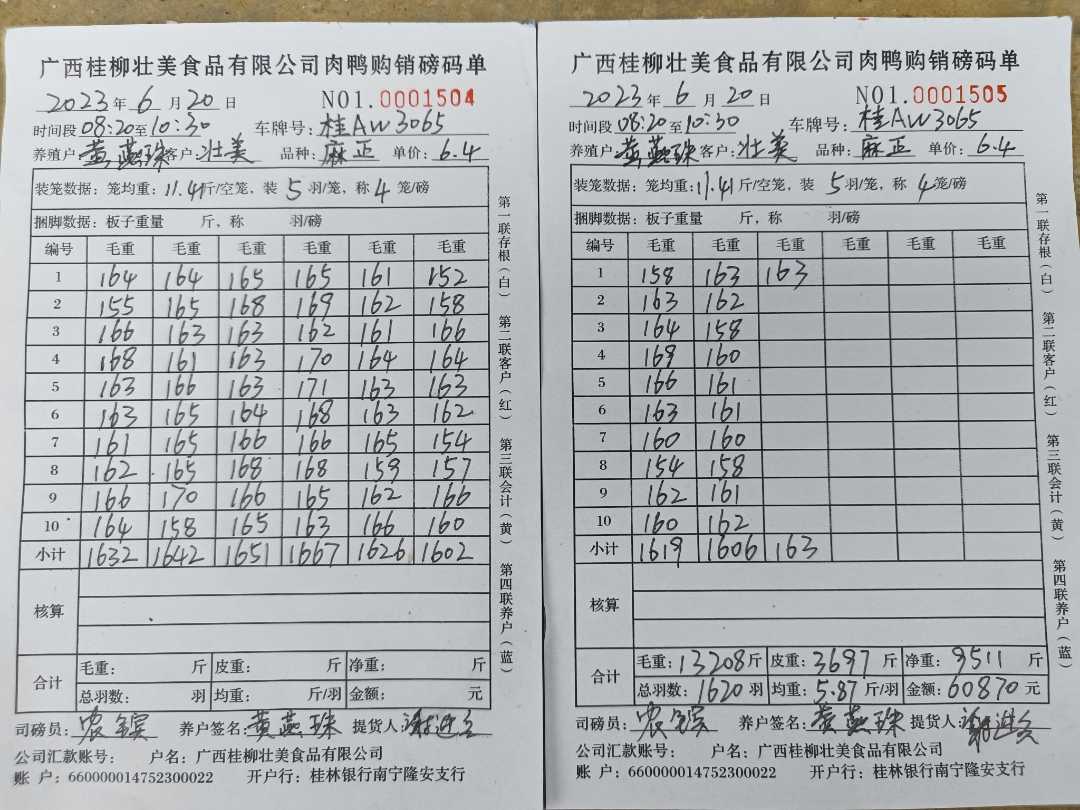 广西桂柳壮美食品有限公司肉鸭购销磅码单
2023年6月20日 NO1.0001504
时间段08:20至10:30 车牌号:桂AW3065
养殖户黄燕珠客户:壮美 品种:麻正 单价:6.4
装笼数据:笼均重:11.41斤/空笼,装5羽/笼,称4笼/磅
捆脚数据:板子重量 斤,称 羽/磅
编号 毛重 毛重 毛重 毛重 毛重 毛重
1 164 164 165 165 161 152
2 155 165 168 169 162 158
3 166 163 163 162 161 166
4 168 161 163 170 164 164
5 163 166 163 171 163 163
6 163 165 164 168 163 162
7 161 165 166 166 165 154
8 162 165 168 168 159 157
9 166 170 166 165 162 166
10 164 158 165 163 166 160
小计 1632 1642 1651 1667 1626 1602
核算
合计 毛重: 斤 皮重: 斤 净重: 斤
总羽数: 羽 均重: 斤/羽 金额: 元
司磅员: 养户签名:黄燕珠 提货人:
公司汇款账号: 户名:广西桂柳壮美食品有限公司
账 户:660000014752300022 开户行:桂林银行南宁隆安支行
第一联存根(白) 第二联客户(红) 第三联会计(黄) 第四联养户(蓝)
广西桂柳壮美食品有限公司肉鸭购销磅码单
2023年6月20日 NO1.0001505
时间段08:20至10:30 车牌号:桂AW3065
养殖户黄燕珠客户:壮美 品种:麻正 单价:6.4
装笼数据:笼均重:11.41斤/空笼,装5羽/笼,称4笼/磅
捆脚数据:板子重量 斤,称 羽/磅
编号 毛重 毛重 毛重 毛重 毛重 毛重
1 158 163 163
2 163 162
3 164 158
4 169 160
5 166 161
6 163 161
7 160 160
8 154 158
9 162 161
10 160 162
小计 1619 1606 163
核算
合计 毛重:13208斤 皮重:3697斤 净重:9511斤
总羽数:1620羽 均重:5.87斤/羽 金额:60870元
司磅员: 养户签名:黄燕珠 提货人:
公司汇款账号: 户名:广西桂柳壮美食品有限公司
账 户:660000014752300022 开户行:桂林银行南宁隆安支行
第一联存根(白) 第二联客户(红) 第三联会计(黄) 第四联养户(蓝)